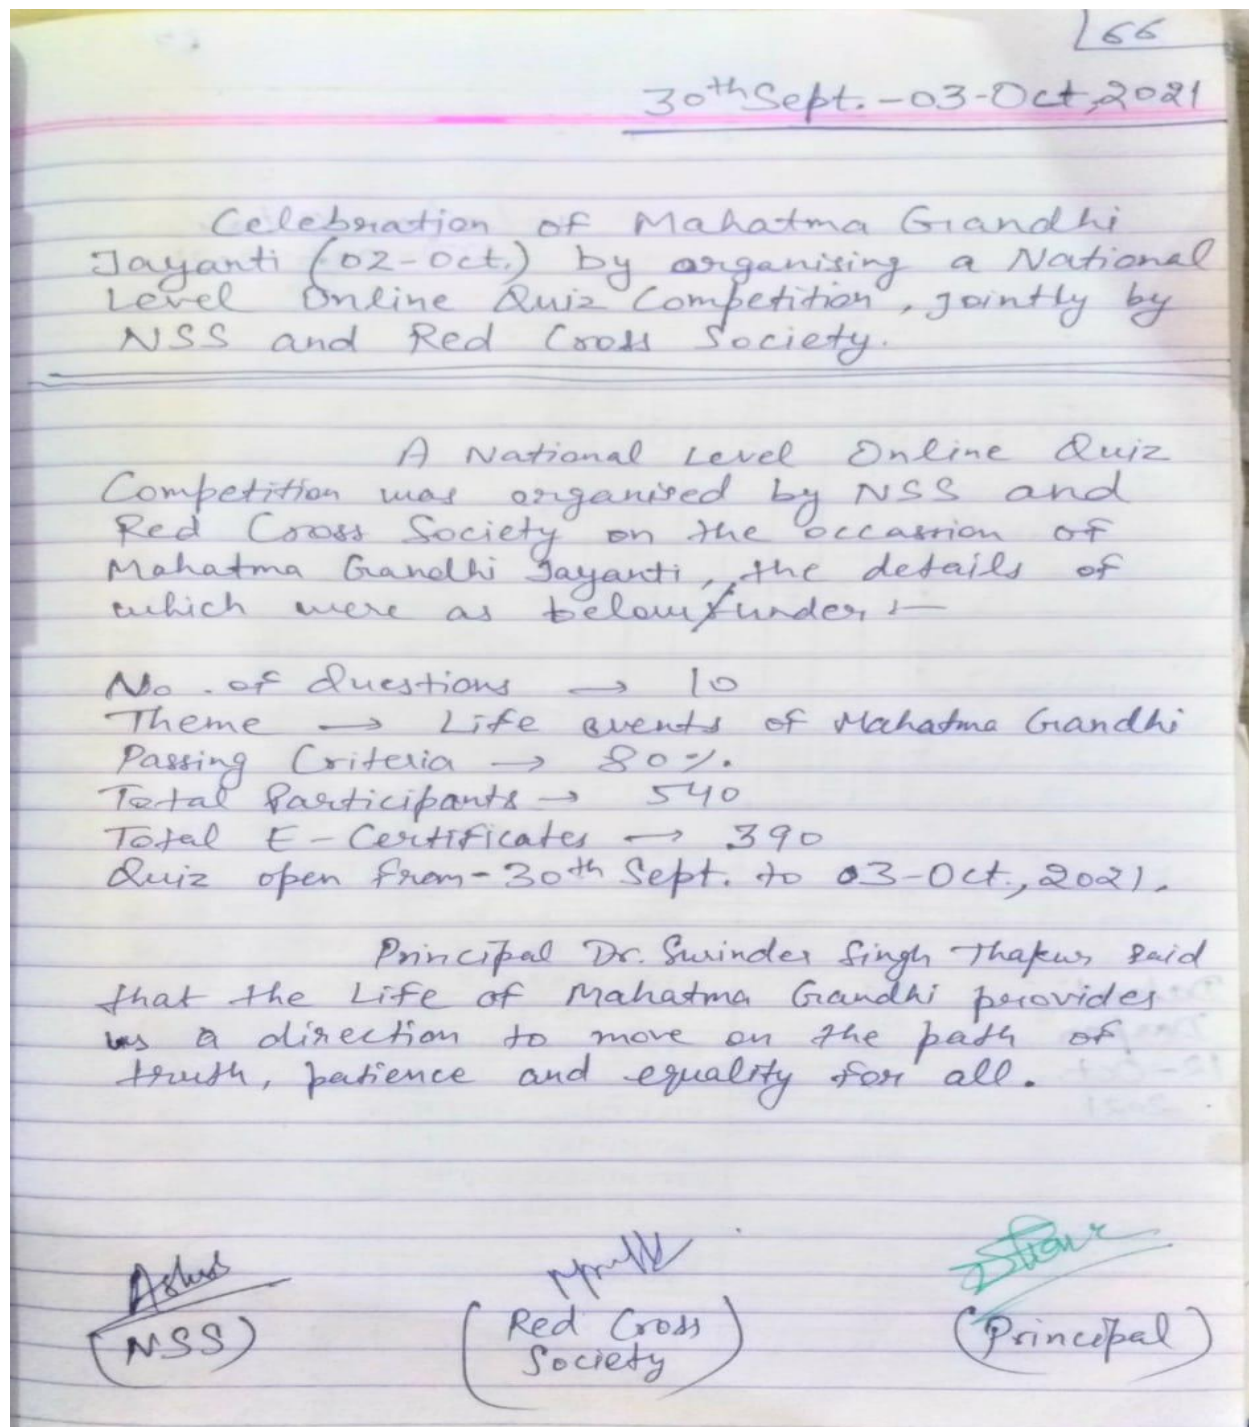 66
30th Sept. - 03-Oct, 2021
Celebration of Mahatma Gandhi
Jayanti (02-Oct.) by organising a National
Level Online Quiz Competition, jointly by
NSS and Red Cross Society.
A National Level Online Quiz
Competition was organised by NSS and
Red Cross Society on the occassion of
Mahatma Gandhi Jayanti, the details of
which were as below/under :-
No. of Questions → 10
Theme → Life events of Mahatma Gandhi
Passing Criteria → 80%.
Total Participants → 540
Total E-Certificates → 390
Quiz open from - 30th Sept. to 03-Oct., 2021.
Principal Dr. Surinder Singh Thakur said
that the Life of Mahatma Gandhi provides
us a direction to move on the path of
truth, patience and equality for all.
(NSS)
(Red Cross
Society)
(Principal)